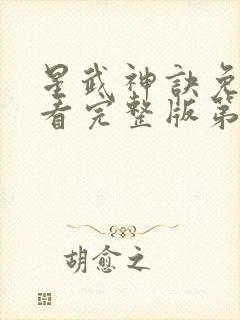 星武神訣免
看完整版第
胡愈之